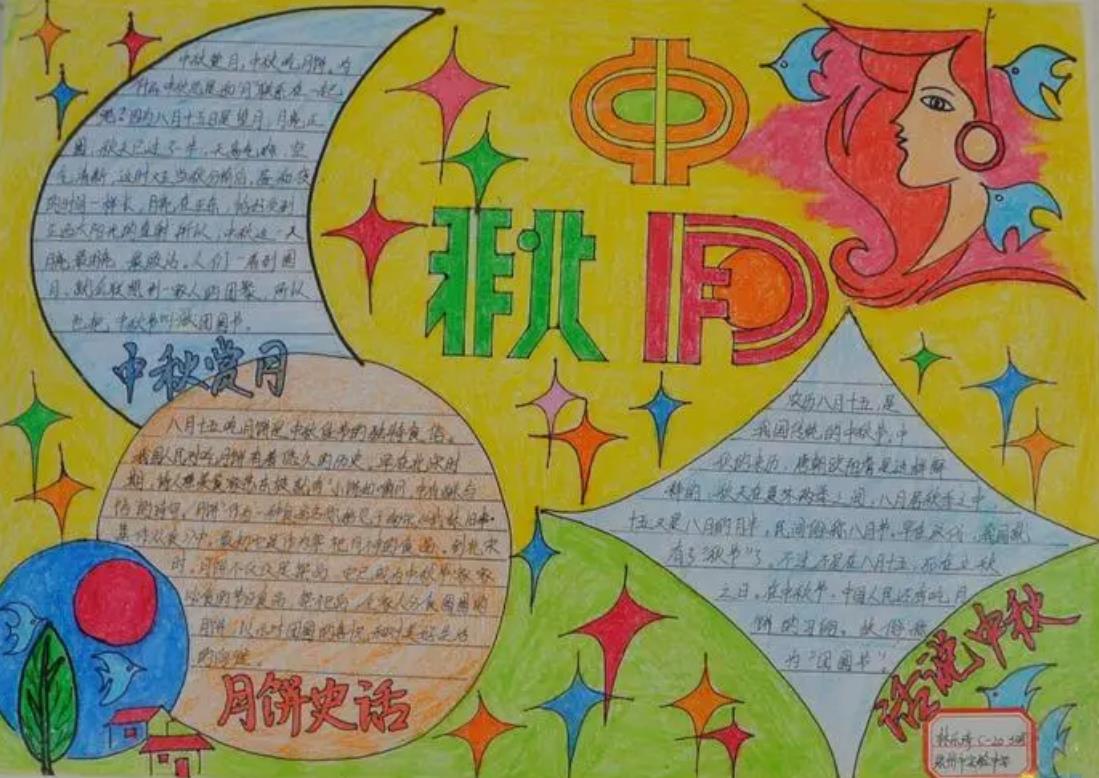 中
秋月
中秋赏月，中秋吃月饼。为
什么中秋总是和月联系在一起
呢？因为八月十五日是望月，月亮正
圆，秋天已过了半，天高气爽，空
气清新，这时又正当秋分前后，昼和夜
的时间一样长，月亮在正东，
正西太阳光的直射 所以，中秋这一天
月亮最 最皎洁。人们一看到圆
月，就会联想到一家人的团聚，所以
也把 中秋节叫做团圆节。
中秋赏月
八月十五吃月饼是中秋佳节的独特食俗。
我国人民对吃月饼有着悠久的历史，早在北宋时
期，诗人 苏东坡就有“小饼如嚼月，中有酥与
饴”的诗句，月饼作为一种食品
集 ，最初
时，月饼不仅仅是祭品，它已成为中秋节家家
必食的节日食品，祭祀后，全家人分食圆圆的
月饼，以示对团圆的喜悦和对美好生活
的向往。
月饼史话
农历八月十五，是
我国传统的中秋节，中
秋的来历，唐朝欧阳詹是这样解
释的，秋天在夏冬两季之间，八月居秋季之中，
十五又是八月的月中，民间俗称八月节，早在汉代，我国就
有了“秋节”了，不过不是在八月十五，而在立秋
之日，在中秋节，中国人民还有吃月
饼的习俗，故俗称
为“团圆节”。
话说中秋